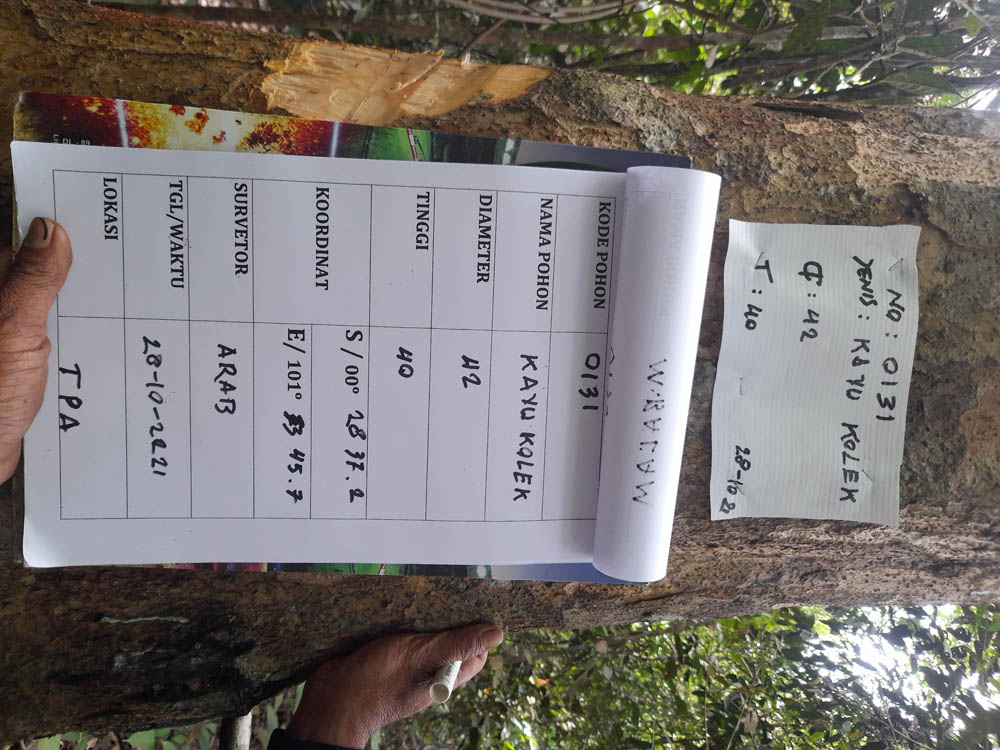 NO : 0131
JENIS : KAYU KOLEK
₵ : 42
T : 40
28-10 21
NAMA POHON
W.BALAM
KODE POHON 0131
NAMA POHON KAYU KOLEK
DIAMETER 42
TINGGI 40
KOORDINAT
S / 00º 28 37.2
E/ 101º 45.7
SURVETOR ARAB
TGL/WAKTU 28-10-2021
LOKASI TPA